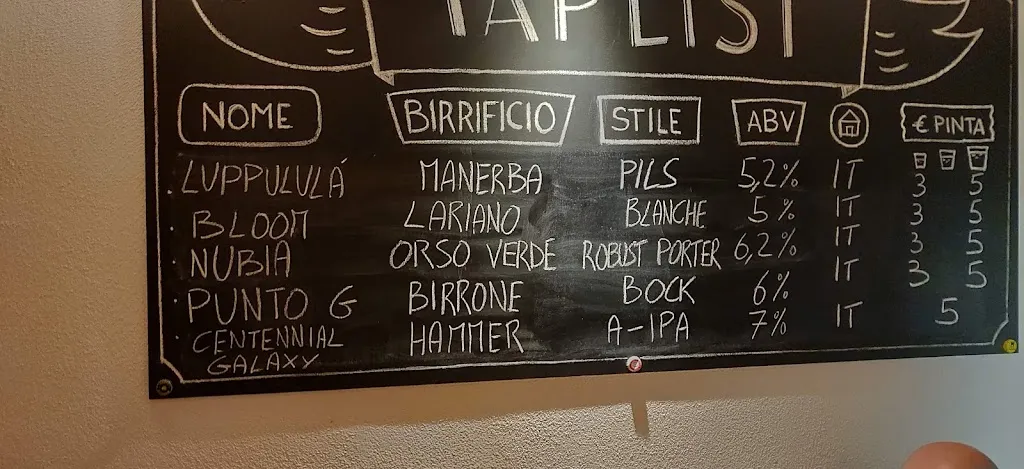 TAPLIST
NOME BIRRIFICIO STILE ABV € PINTA
LUPPULULÁ MANERBA PILS 5,2% IT 3 5
BLOOM LARIANO BLANCHE 5% IT 3 5
NUBIA ORSO VERDE ROBUST PORTER 6,2% IT 3 5
PUNTO G BIRRONE BOCK 6% IT 3 5
CENTENNIAL HAMMER A-IPA 7% IT 5
GALAXY